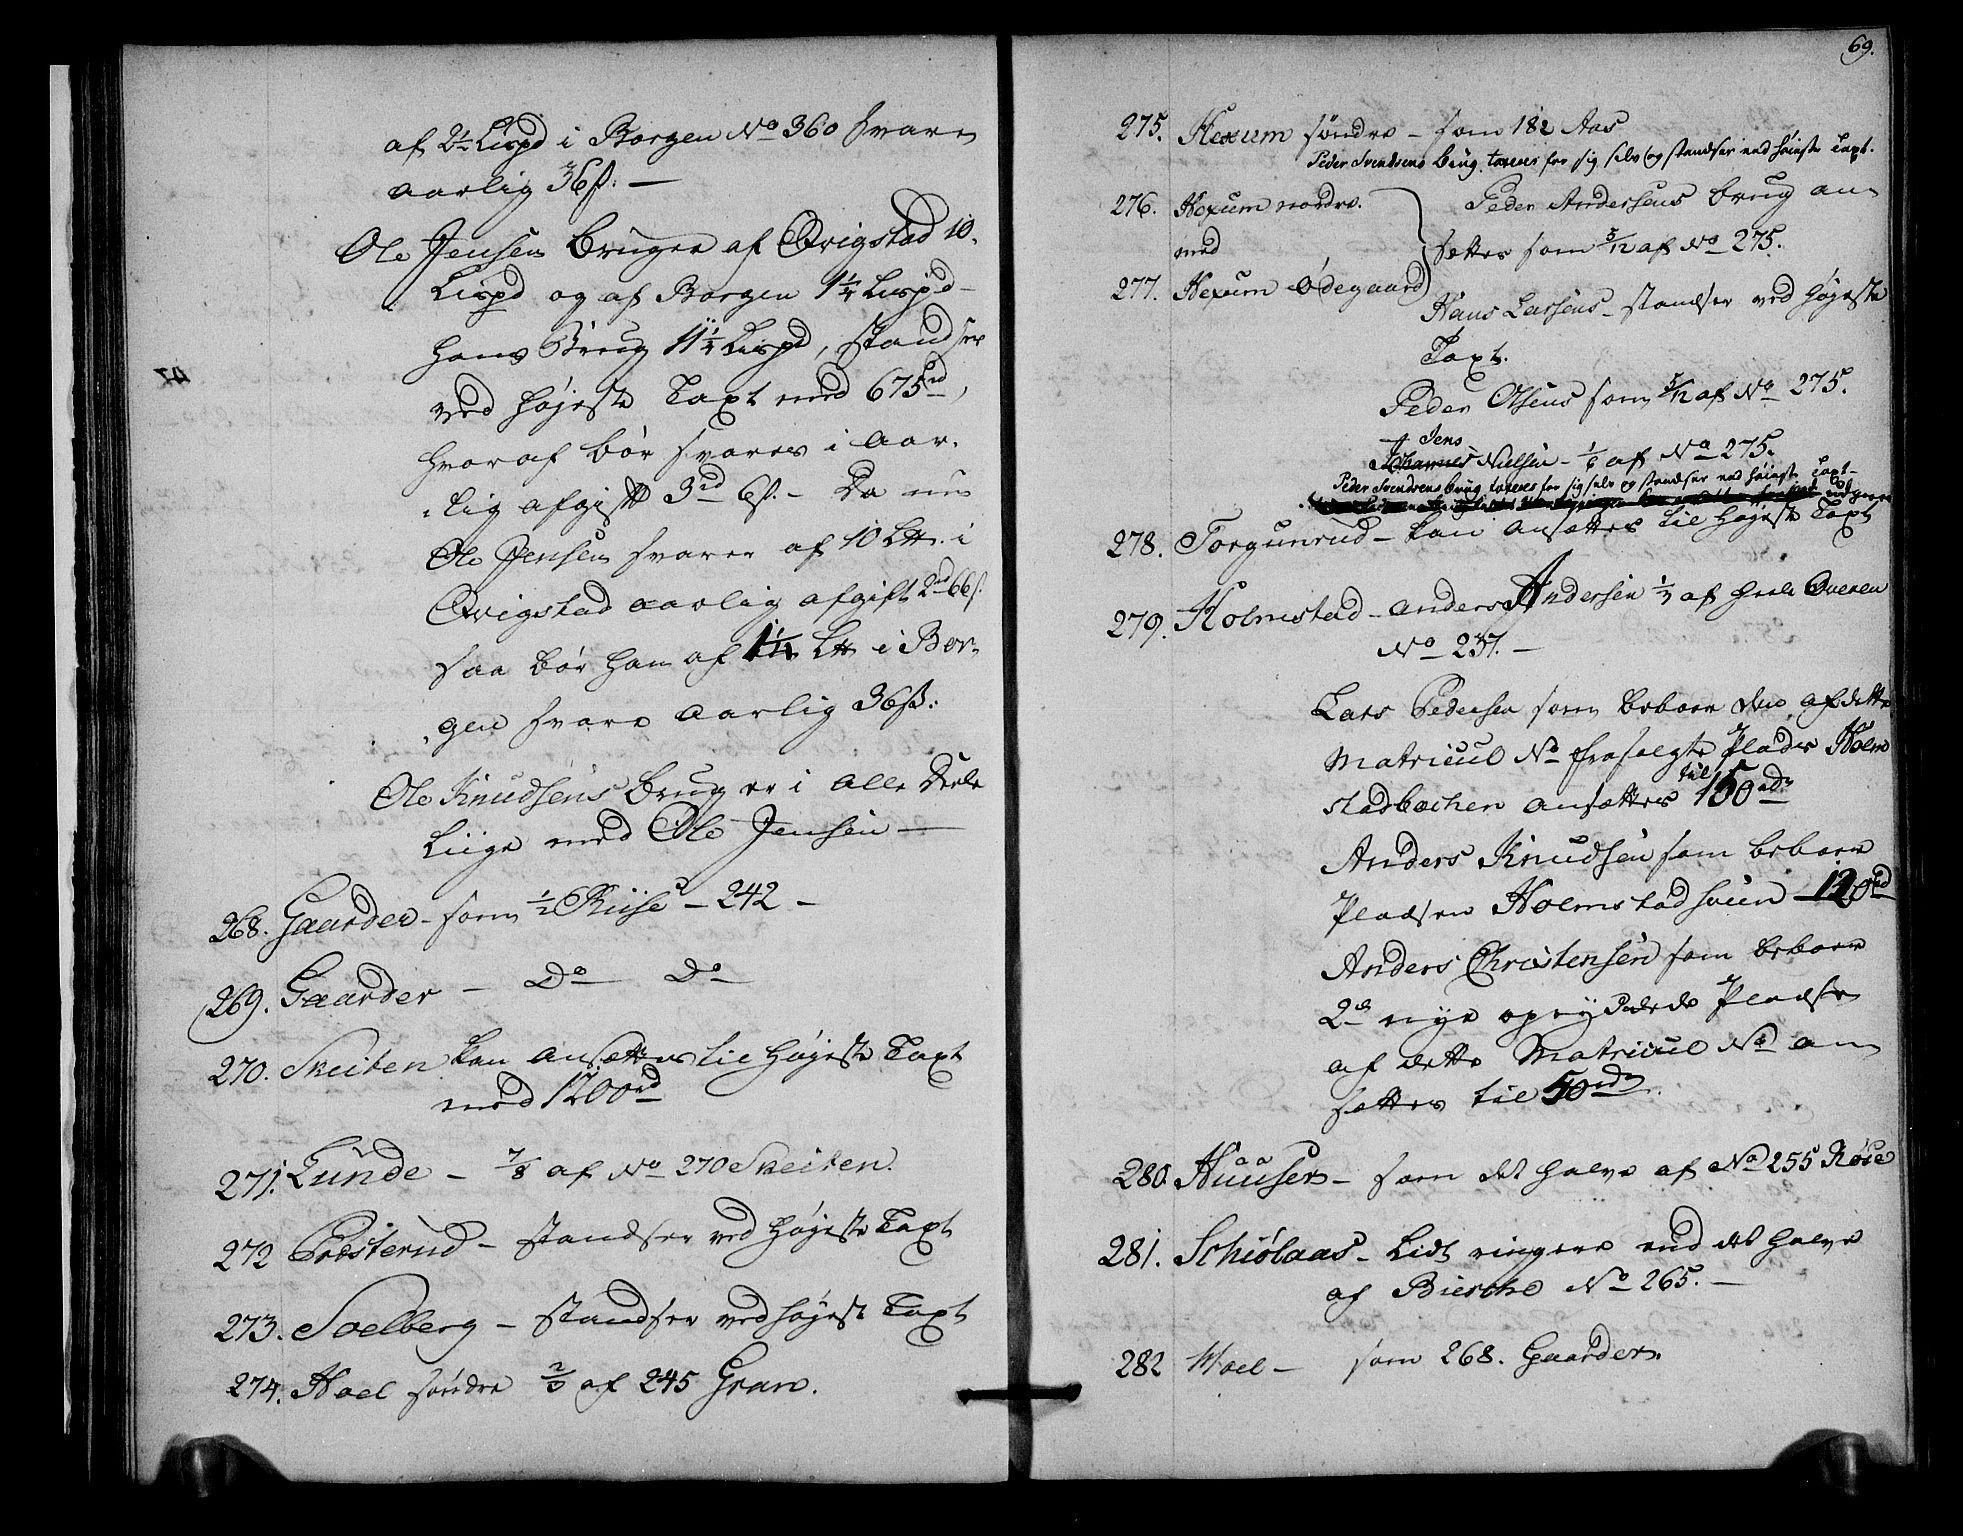 af 2½ Lispd i Borgen No 360 svare
aarlig 36 s: —
Ole Jensen bruger af Qvigstad 10.
Lispd og af Borgen 1¼ Lispd —
hans Brug 11¼ Lispd, standser
ved højeste Taxt med 675 rd,
hvoraf bør svares i aar,
,lig afgift 3 rd 6 s. — Da nu
Ole Jensen svarer af 10 L℔. i
Qvigstad aarlig afgift 2 rd 66 s.
saa bør han af 1¼ L℔ i Bor,
,gen svare aarlig 36 s:
Ole Knudsens Brug er i alle Dele
liige med Ole Jensen —
268. Gaarder — som ½ Riise — 242 —
269. Gaarder — Do — Do —
270. Skeiten kan ansættes til højeste Taxt
med 1200 rd
271. Lunde — 7/8 af No 270 Skeiten.
272 Præsterud — standser ved højeste Taxt
273. Soelberg — standser ved højest Taxt
274. Hoel søndre 2/3 af 245 Gran.
69.
275. Hexum søndre — som 182 Aas
Peder Svendsens Brug taxeres for sig selv og standser ved høieste Taxt.
276. Hexum nordre. Peder Andersens brug an
med sættes som 5/12 af No 275.
277. Hexum Ødegaard Hans Larsens — standser ved højeste
Taxt.
Peder Olsens som 5/12 af No 275.
Jens
Johannes Nielsen — 1/6 af No 275.
Peder Svendsens Brug taxeres for sig selv og standser ved høieste Taxt —
278. Torgunrud — kan ansættes til højeste Taxt
279. Holmstad — Anders Andersen af hele Qveren
No 237. —
Lars Pedersen som beboer den af dette
Matricul No frasolgte Plads Holm
stadbachen ansættes til 150 rdr
Anders Knudsen som beboer
Pladsen Holmstadhuun — 120 rd
Anders Christensen som beboer
2de nye opryddede Pladse
af dette Matricul No an
sættes til 50 rdr.
280. Huuser — som det halve af No 255 Røise
281. Schiølaas — lidt ringere end det halve
af Biesche No 265. —
282 Moel — som 268. Gaarder.